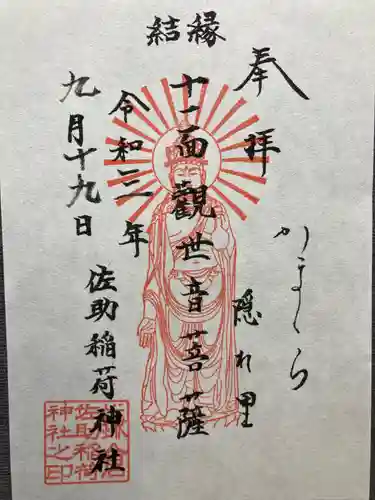 縁結
奉拝
かまくら
隠れ里
十一面観世音菩薩
令和三年
九月十九日
佐助稲荷神社
鎌倉
佐助稲荷
神社之印